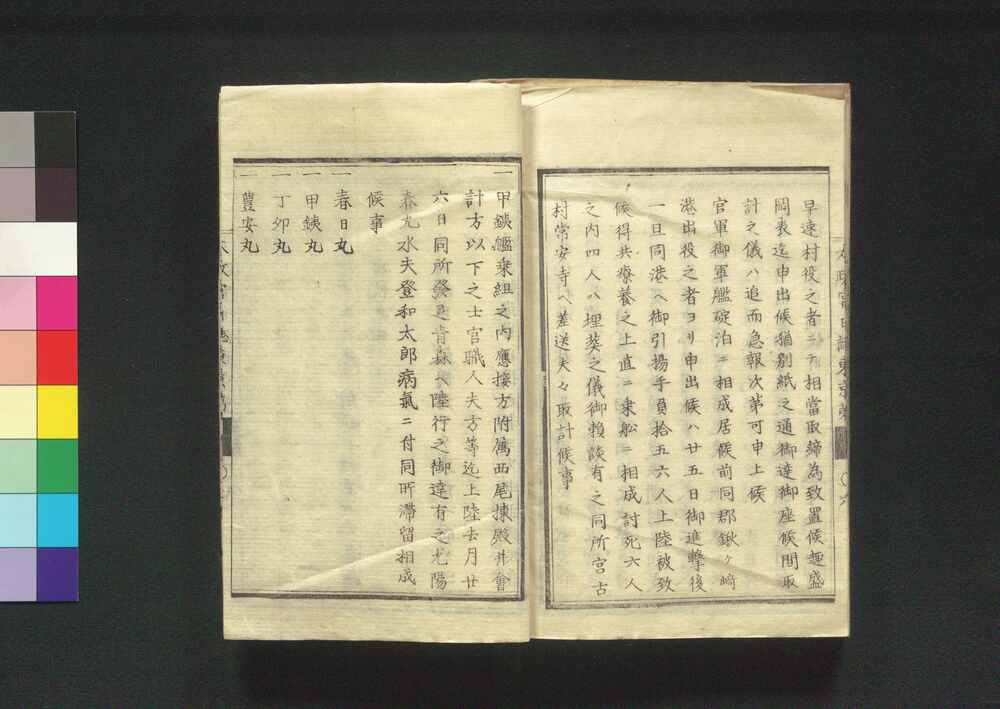 早速村役之者ニテ相當取締為致置候趣盛
岡表迄申出候猶別紙之通御達御座候間取
計之儀ハ追而急報次第可申上候
官軍御軍艦碇泊ニ相成居候前同郡鍬ヶ崎
港出役之者ヨリ申出候ハ廿五日御進擊後
一旦同港ヘ御引揚手負拾五六人上陸被致
候得共療養之上直ニ乗船ニ相成討死六人
之内四人ハ埋葬之儀御頼談有之同所宮古
村常安寺ヘ差送夫々取計候事
一甲鉄艦乗組之内應接方附属西尾揀殿并會
計方以下之士官職人夫方等迄上陸去月廿
六日同所發足青森ヘ陸行之御達有之尤陽
春丸水夫登和太郎病氣ニ付同所滞留相成
候事
一春日丸
一甲鉄丸
一丁卯丸
一豊安丸